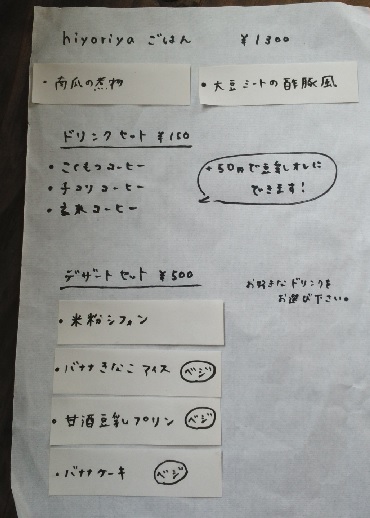 hiyoriya ごはん ¥1300
・南瓜の煮物 ・大豆ミートの酢豚風
ドリンクセット ¥150
・こくもつコーヒー
・チコリコーヒー
・玄米コーヒー
+50円で豆乳オレに
できます!
デザートセット ¥500
お好きなドリンクを
お選び下さい。
・米粉シフォン
・バナナきなこアイス ベジ
・甘酒豆乳プリン ベジ
・バナナケーキ ベジ